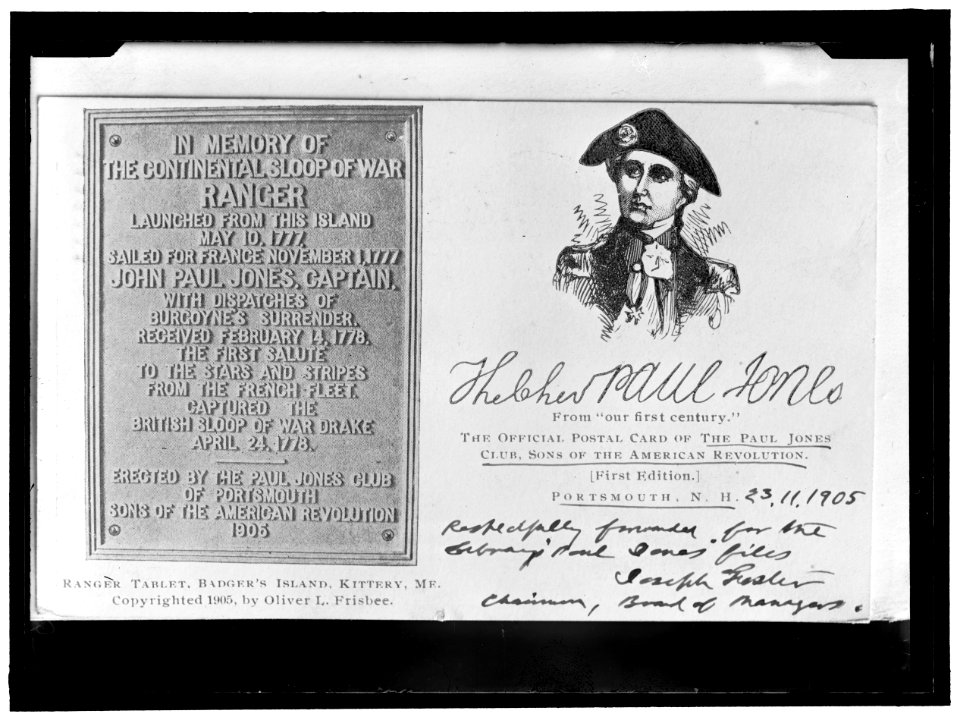 IN MEMORY OF
THE CONTINENTAL SLOOP OF WAR
RANGER
LAUNCHED FROM THIS ISLAND
MAY 10, 1777.
SAILED FOR FRANCE NOVEMBER 1, 1777
JOHN PAUL JONES, CAPTAIN,
WITH DISPATCHES OF
BURGOYNE'S SURRENDER.
RECEIVED FEBRUARY 14, 1778,
THE FIRST SALUTE
TO THE STARS AND STRIPES
FROM THE FRENCH FLEET.
CAPTURED THE
BRITISH SLOOP OF WAR DRAKE
APRIL 24, 1778.
ERECTED BY THE PAUL JONES CLUB
OF PORTSMOUTH
SONS OF THE AMERICAN REVOLUTION
1905
RANGER TABLET, BADGER'S ISLAND, KITTERY, ME.
Copyrighted 1905, by Oliver L. Frisbee.
PAUL Jones
From "our first century."
THE OFFICIAL POSTAL CARD OF THE PAUL JONES
CLUB, SONS OF THE AMERICAN REVOLUTION.
[First Edition.]
PORTSMOUTH, N. H. 23, 11, 1905
Respectfully forwarded for the
Library's Paul Jones files
Joseph Foster
Chairman, Board of Managers.